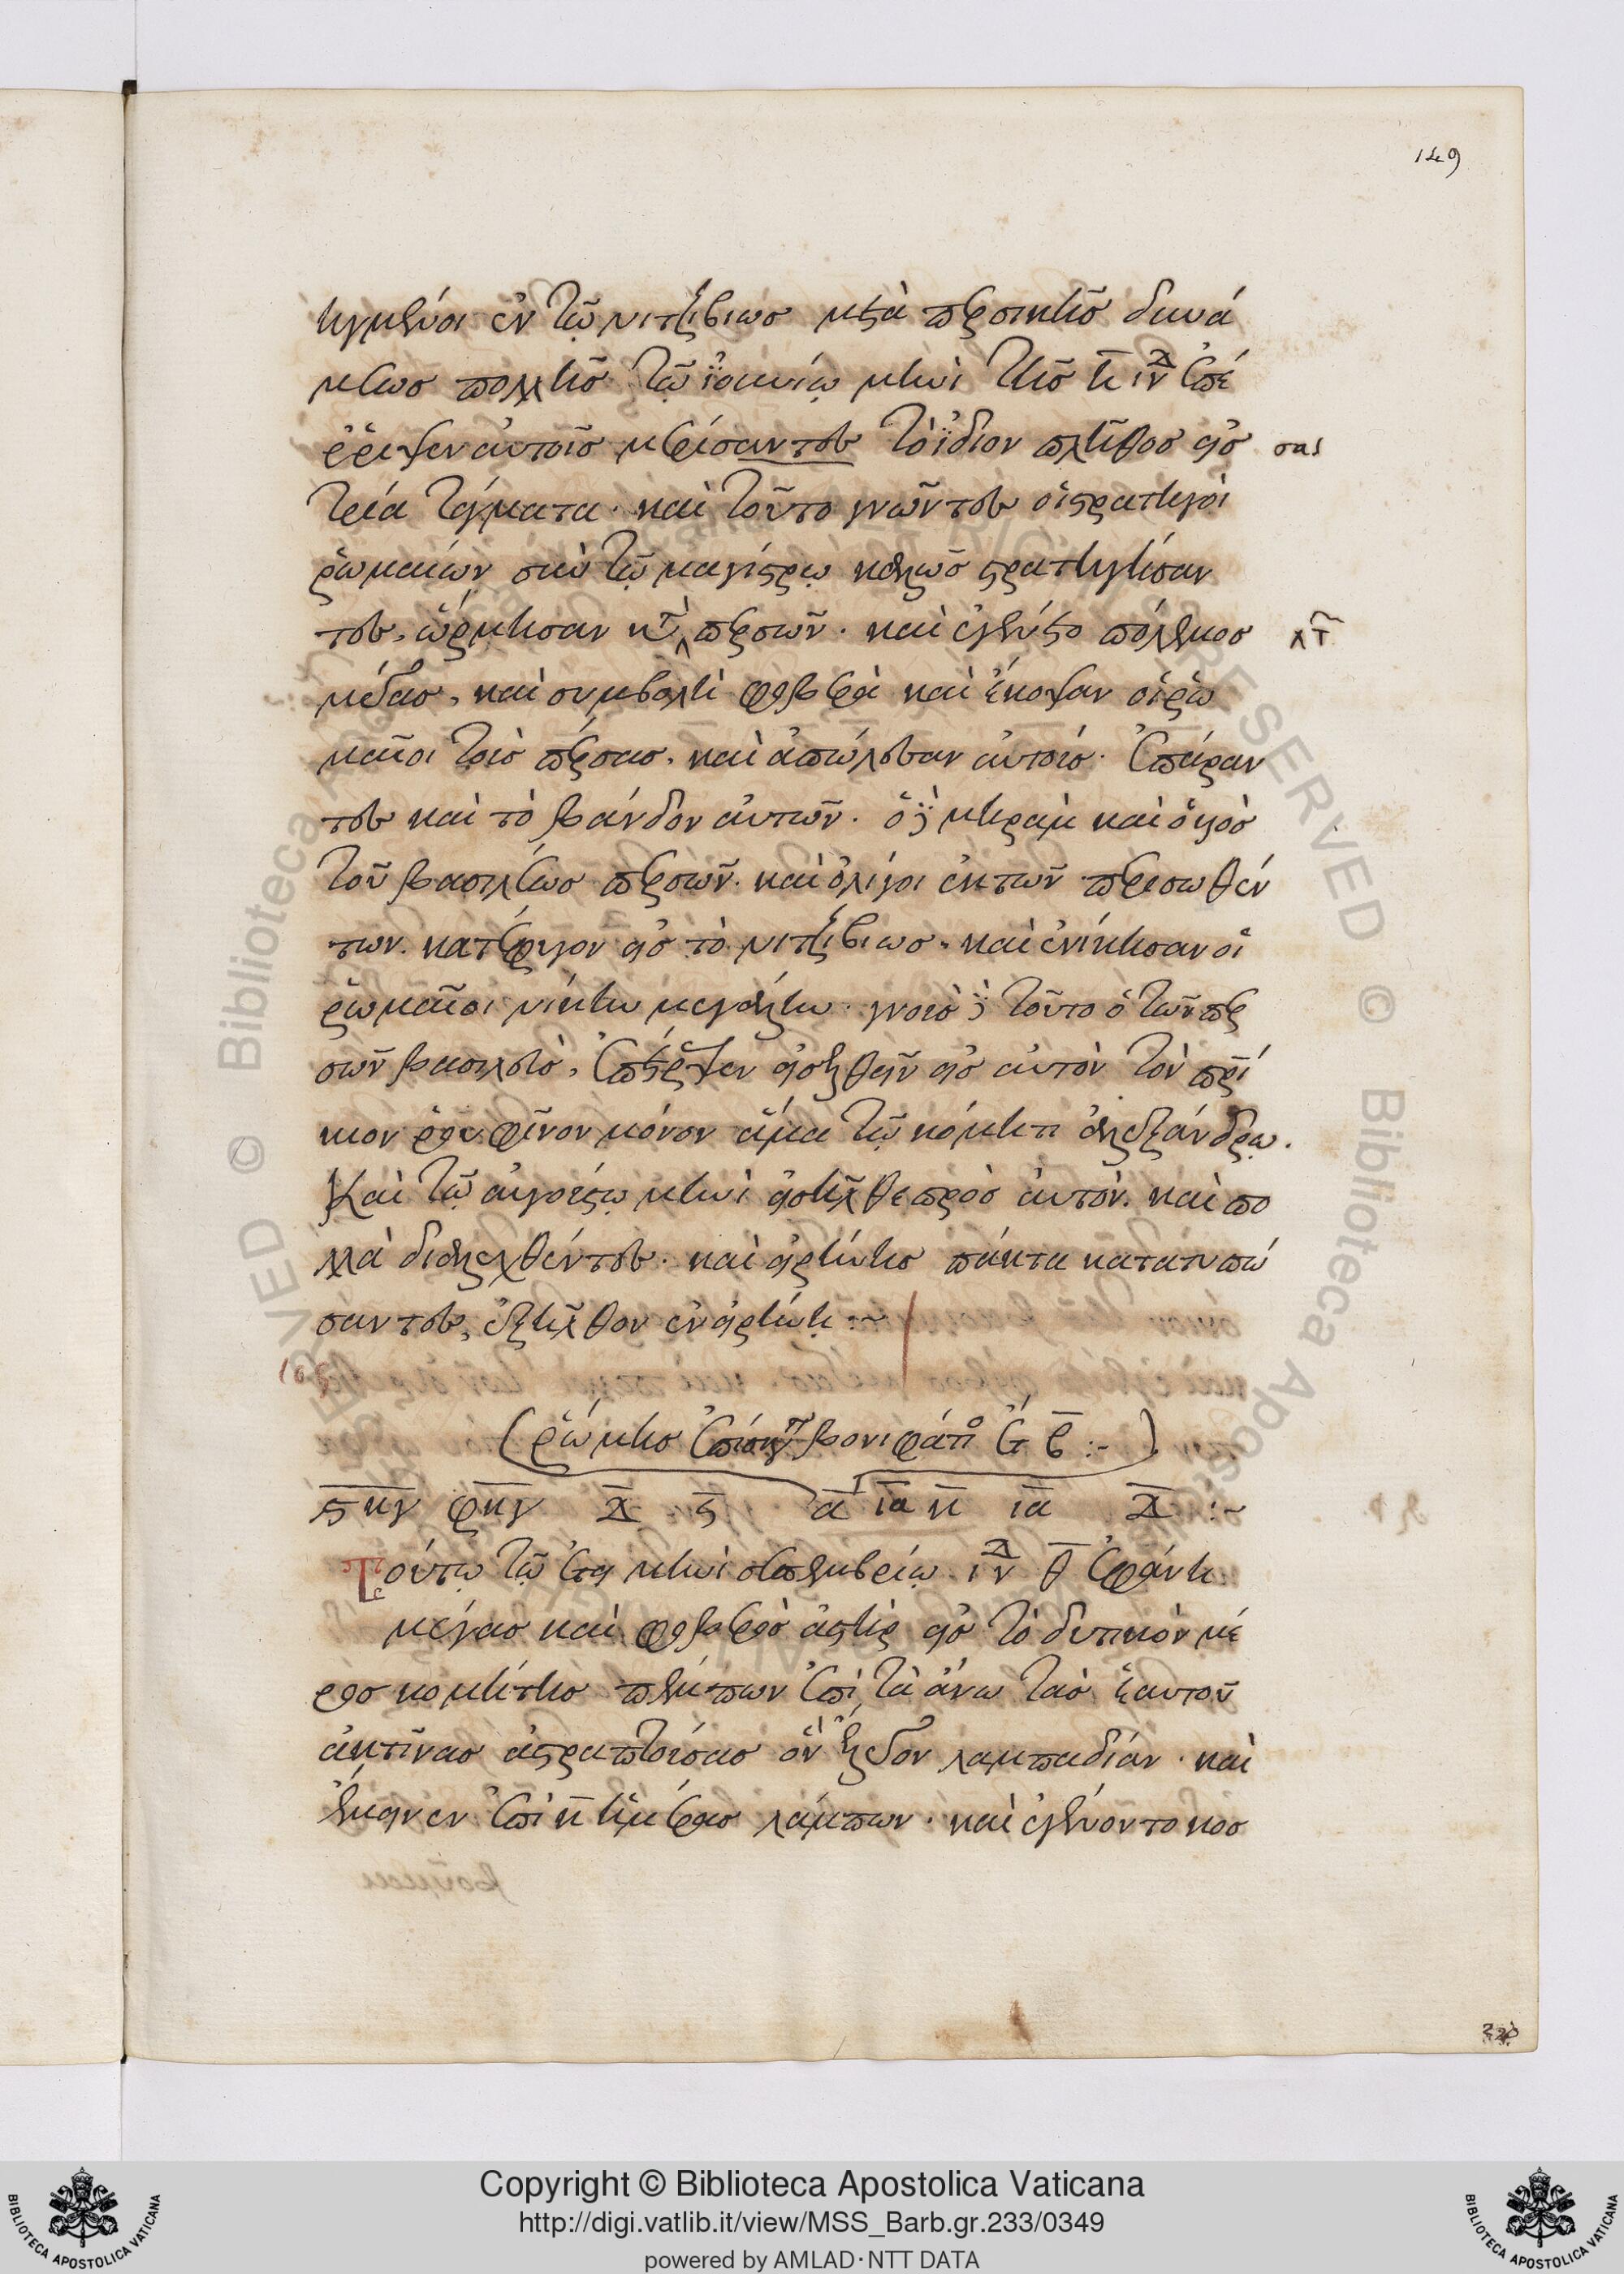 149
ηγμένοι ἐν τῷ νιτζίβιως μετὰ περσικῆς δυνά
μεως πολλῆς τῷ ἰουνίῳ μηνὶ τῆς η ἰνδ ἐπέ
ρριψεν αὐτοῖς μερίσαντες τὸ ἴδιον πλῆθος εἰς σας
τρία τάγματα· καὶ τοῦτο γνῶντες οἱ στρατηγοὶ
ῥωμαίων σὺν τῷ μαγίστρῳ καλῶς στρατηγήσαν
τες, ὥρμησαν κατὰ περσῶν· καὶ ἐγένετο πόλεμος ⁁ τ
μέγας, καὶ συμβολὴ φοβερὰ καὶ ἔκοψαν οἱ ῥω
μαῖοι τοὺς πέρσας, καὶ ἀπώλεσαν αὐτούς· ἐπάραν
τες καὶ τὸ βάνδον αὐτῶν· ὁ δὲ μηραμ καὶ ὁ υἱὸς
τοῦ βασιλέως περσῶν· καὶ ὀλίγοι ἐκ τῶν περισωθέν
των κατέφυγον εἰς τὸ νιτζίβιως· καὶ ἐνίκησαν οἱ
ῥωμαῖοι νίκην μεγάλην· γνοὺς δὲ τοῦτο ὁ τῶν περ
σῶν βασιλεὺς, ἐπέτρεψεν εἰσελθεῖν εἰς αὐτὸν τὸν πρί
κιον ῥουφῖνον μόνον ἅμα τῷ κόμητι ἀλεξάνδρῳ.
Καὶ τῷ αὐγούστῳ μηνὶ εἰσῆλθε πρὸς αὐτόν· καὶ πο
λλὰ διαλεχθέντες· καὶ εἰρήνης πάκτα κατατυπώ
σαντες, ἐξῆλθον ἐν εἰρήνῃ :~
ῥώμης ἐπίσκοπ βονιφάτιο ἔτ β :-
ϛκγ φκγ δ ϛ α ια κ ια δ :~
Τούτῳ τῷ ἔτει μηνὶ σεπτεμβρίῳ ἰνδ θ ἐφάνη
μέγας καὶ φοβερὸς ἀστὴρ εἰς τὸ δυτικὸν μέ
ρος κομήτης πέμπων ἐπὶ τὰ ἄνω τὰς ἑαυτοῦ
ἀκτῖνας ἀστραπτούσας ὃν ἔλεγον λαμπαδίαν· καὶ
ἔμεινεν ἐπὶ κ ἡμέρας λάμπων· καὶ ἐγένοντο κοσ
Copyright © Biblioteca Apostolica Vaticana
http://digi.vatlib.it/view/MSS_Barb.gr.233/0349
powered by AMLAD·NTT DATA